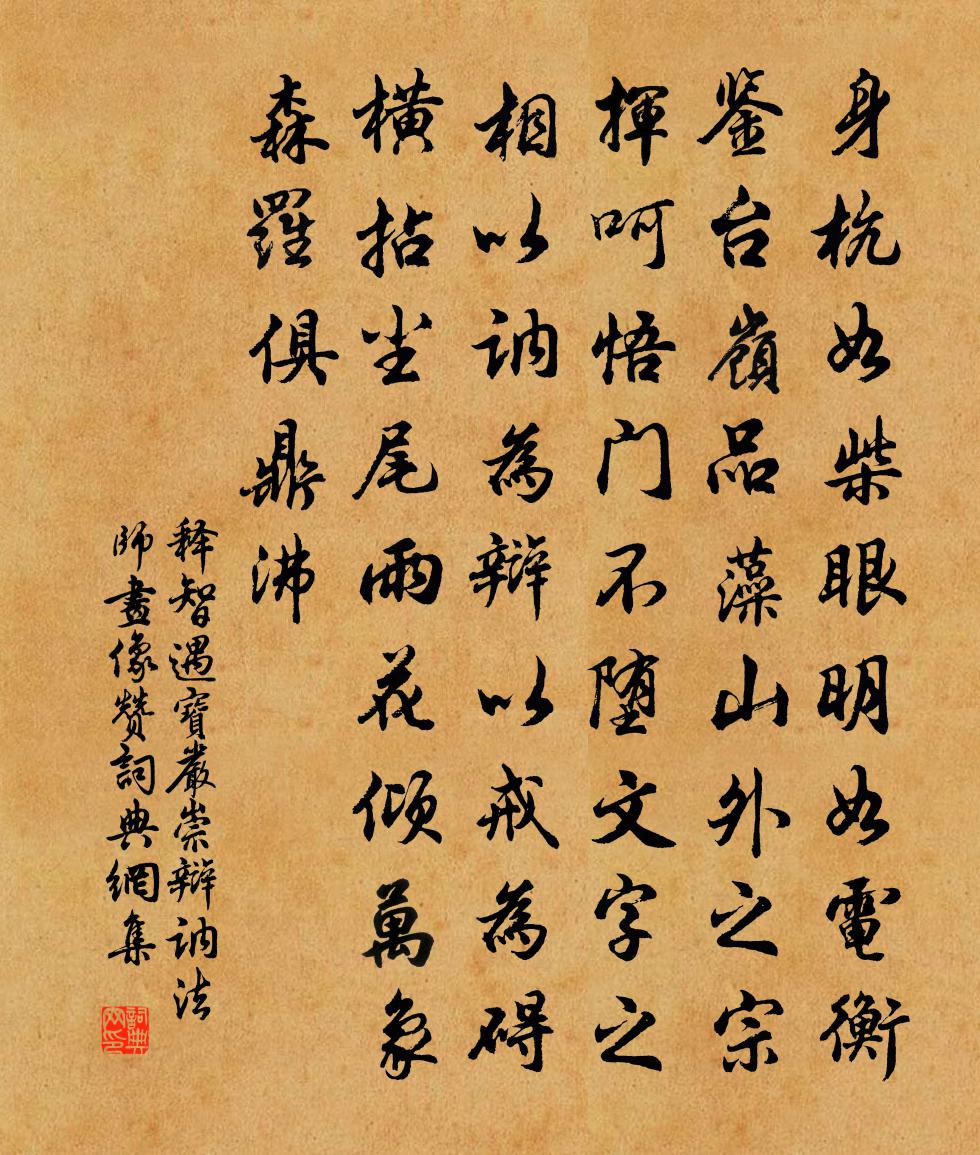 身杭如柴眼明如電衡
鉴台嶺品藻山外之宗
揮呵悟门不堕文字之
相以讷為辯以戒為碍
横拈尘尾雨花倾萬象
森羅俱鼎沸
释智遇寶嚴崇辯讷法
師畫像赞詞典網集
詞典网印